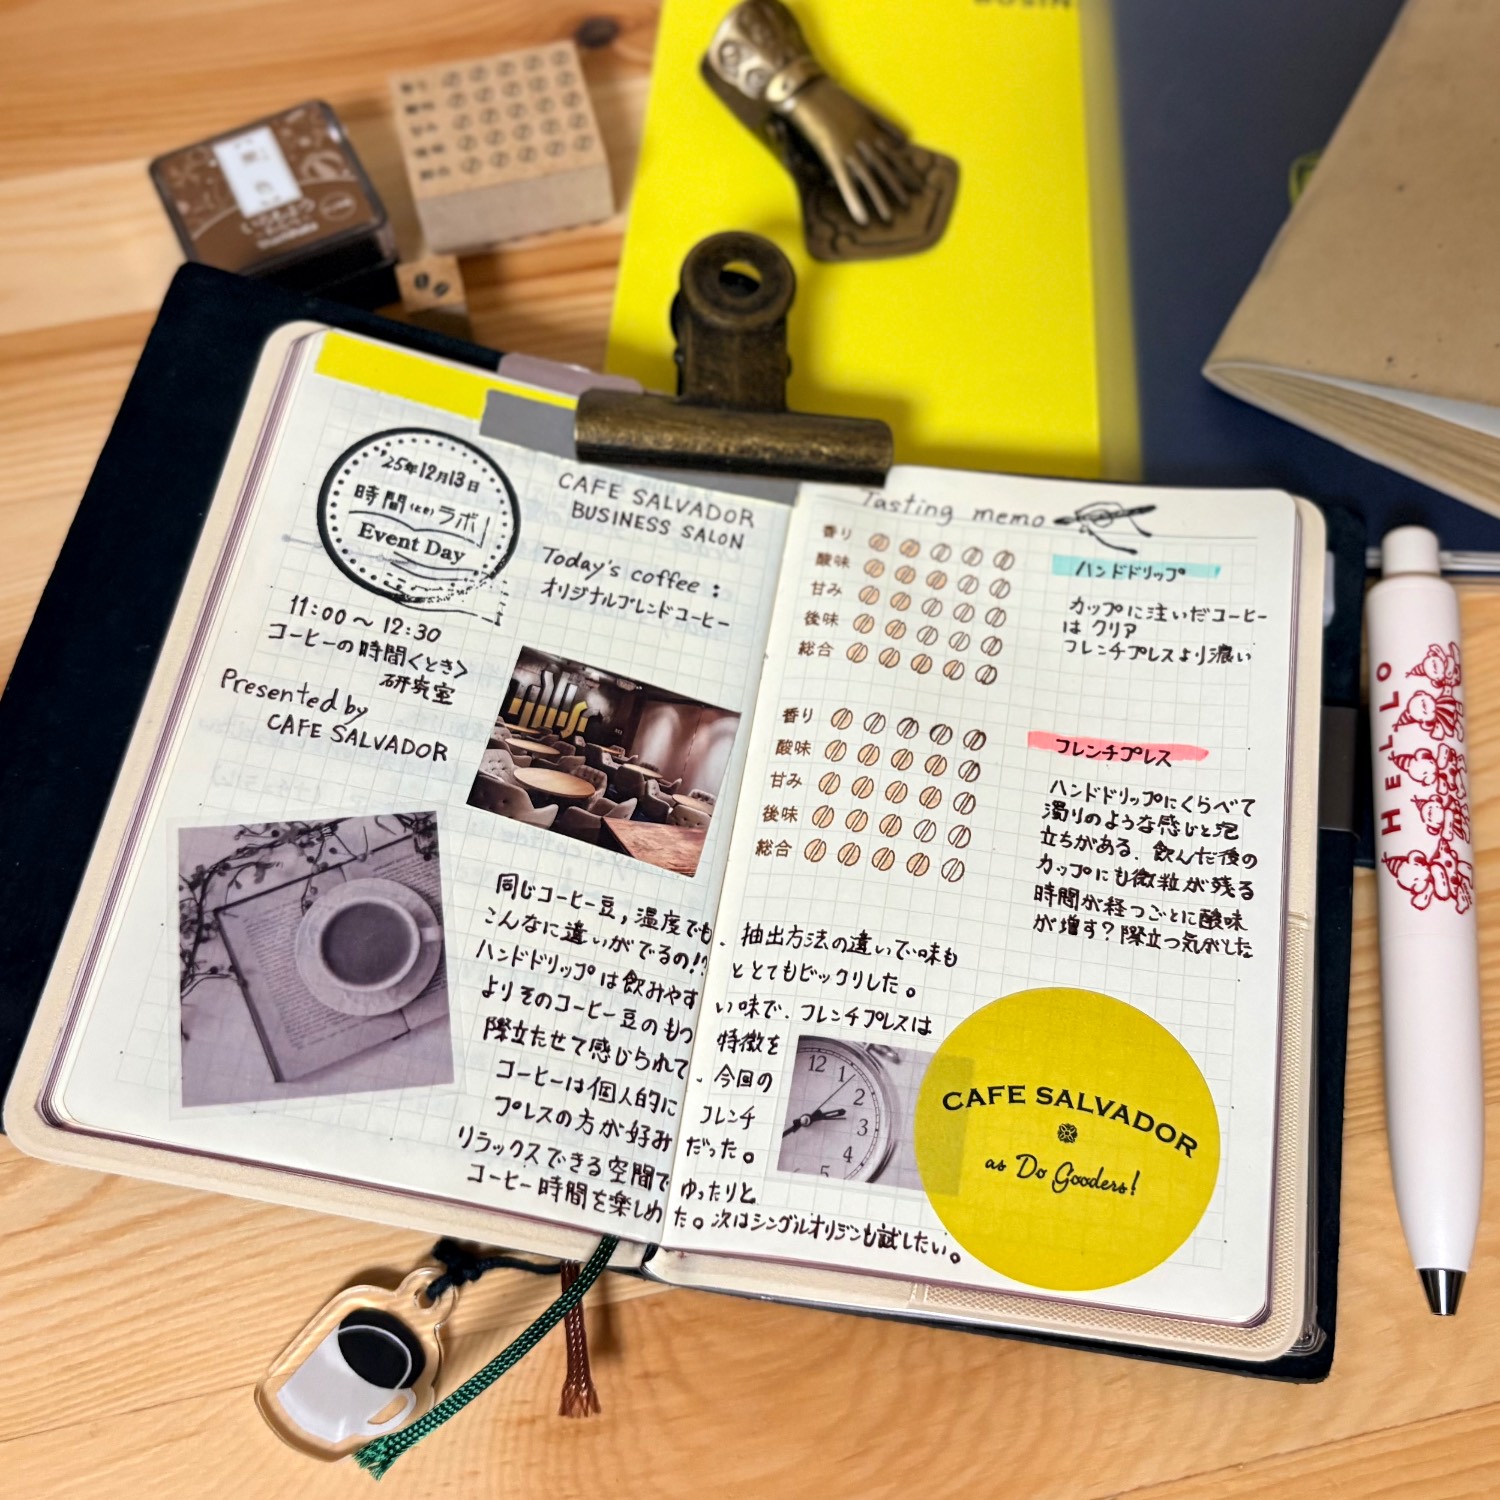 BUSIN
'25年12月13日
時間(とき)ラボ
Event Day
11:00〜12:30
コーヒーの時間<とき>
研究室
Presented by
CAFE SALVADOR
CAFE SALVADOR
BUSINESS SALON
Today's coffee :
オリジナルブレンドコーヒー
同じコーヒー豆,温度でも、抽出方法の違いで味も
こんなに違いがでるの!?ととてもビックリした。
ハンドドリップは飲みやすい味で、フレンチプレスは
よりそのコーヒー豆のもつ特徴を
際立たせて感じられて、今回の
コーヒーは個人的にフレンチ
プレスの方が好みだった。
リラックスできる空間でゆったりと
コーヒー時間を楽しめた。次はシングルオリジンも試したい。
Tasting memo
香り
酸味
甘み
後味
総合
ハンドドリップ
カップに注いだコーヒー
はクリア
フレンチプレスより濃い
香り
酸味
甘み
後味
総合
フレンチプレス
ハンドドリップにくらべて
濁りのような感じと泡
立ちがある。飲んだ後の
カップにも微粒が残る
時間が経つごとに酸味
が増す?際立つ気がした
12
1
2
3
4
5
CAFE SALVADOR
as Do Gooders!
HELLO